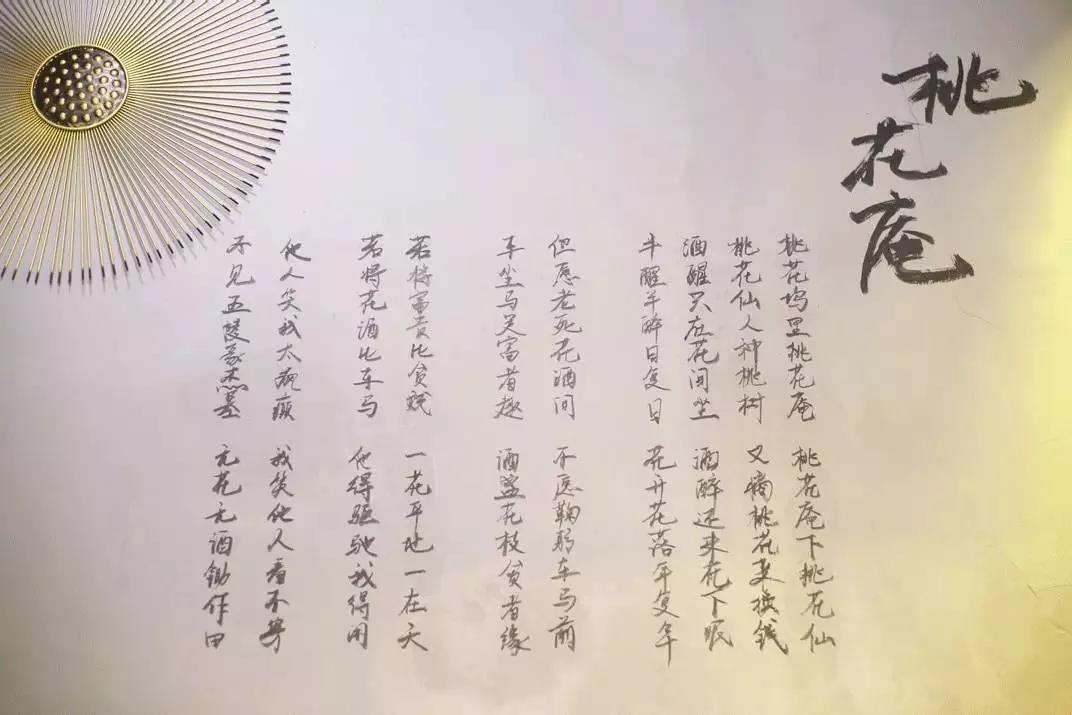 桃花庵
桃花坞里桃花庵 桃花庵下桃花仙
桃花仙人种桃树 又摘桃花来换钱
酒醒只在花间坐 酒醉还来花下眠
半醒半醉日复日 花开花落年复年
但愿老死花酒间 不愿鞠躬车马前
车尘马足富者趣 酒盏花枝贫者缘
若将富贵比贫贱 一花平地一在天
若将花酒比车马 他得驱驰我得闲
他人笑我太疯癫 我笑他人看不穿
不见五陵豪杰墓 无花无酒锄作田